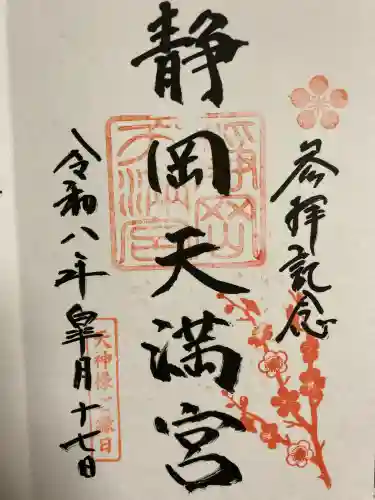 参拝記念
静岡天満宮
令和八年皐月十七日
静岡
天満宮
天神様ご縁日